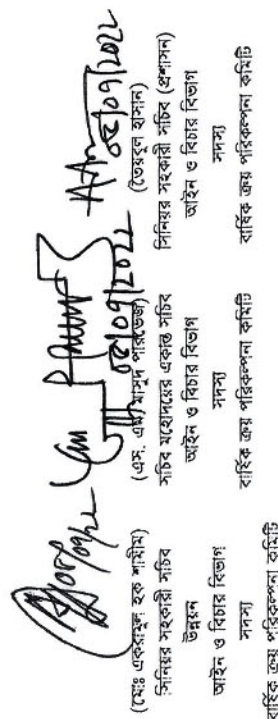 ০৫/০৭/২২
(মোঃ একরামুল হক শামীম)
সিনিয়র সহকারী সচিব
উন্নয়ন
আইন ও বিচার বিভাগ
সদস্য
বার্ষিক ক্রয় পরিকল্পনা কমিটি
০৫/০৭/২০২২
(এস. এম. মাসুদ পারভেজ)
সচিব মহোদয়ের একান্ত সচিব
আইন ও বিচার বিভাগ
সদস্য
বার্ষিক ক্রয় পরিকল্পনা কমিটি
০৫/০৭/২০২২
(তৈয়বুল হাসান)
সিনিয়র সহকারী সচিব (প্রশাসন)
আইন ও বিচার বিভাগ
সদস্য
বার্ষিক ক্রয় পরিকল্পনা কমিটি